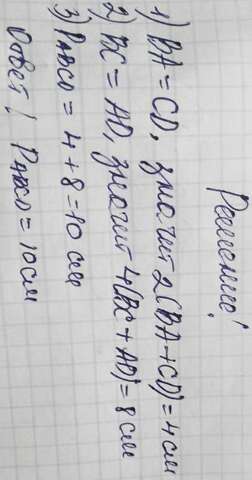 Решение!
1) BA = CD, значит 2(BA+CD)=4 см
2) BC = AD, значит 4(BC + AD)= 8 см
3) PABCD = 4 + 8 = 10 см
Ответ! PABCD = 10 см